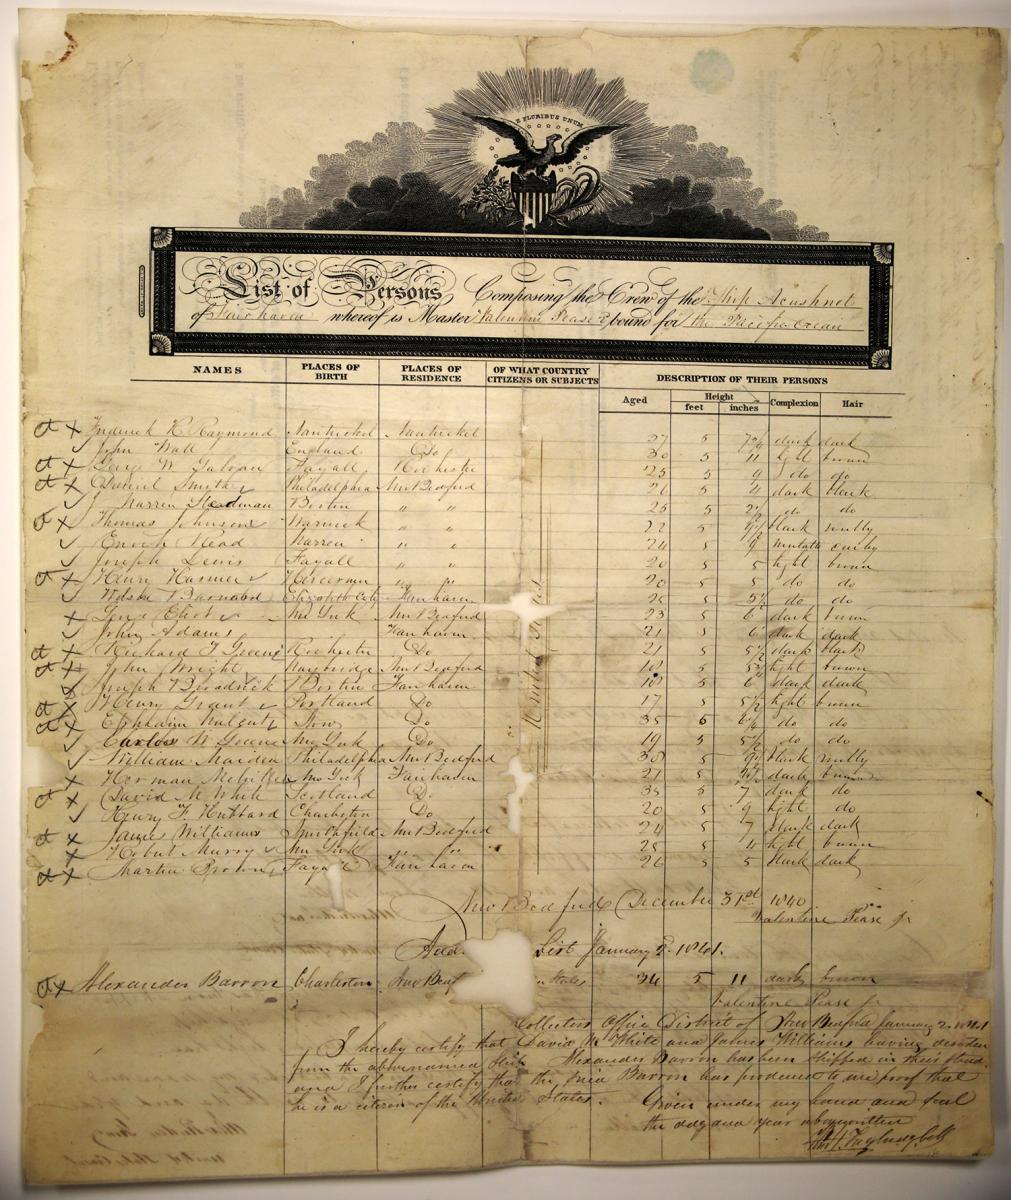 E PLURIBUS UNUM
List of Persons Composing the Crew of the Ship Acushnet
of Fairhaven whereof is Master Valentine Pease Jr bound for the Pacific Ocean
NAMES PLACES OF BIRTH PLACES OF RESIDENCE OF WHAT COUNTRY CITIZENS OR SUBJECTS DESCRIPTION OF THEIR PERSONS
Aged Height feet inches Complexion Hair
Frederick R Raymond Nantucket Nantucket 27 5 dark dark
John Wall England Do 30 5 11 light brown
George W Galvan Fayall Rochester 25 5 9 do do
Daniel Smith Philadelphia New Bedford 26 5 4 dark black
J Warren Stedman Boston " " 25 5 2½ do do
Thomas Johnson Warwick " " 22 5 black woolly
Enoch Read Warren " " 24 5 9 mulatto curly
Joseph Luis Fayall " " 20 5 5 light brown
Henry Harmer " " 20 5 5 do do
Wilson Barnard Elizabeth City Fairhaven 5 5½ do do
George Elliot New York New Bedford 23 5 6 dark brown
John Adams Fairhaven 21 5 6 dark dark
Richard T Greene Rochester Do 21 5 5½ dark black
John Wright New Bedford 18 5 light brown
Joseph Broadrick Boston Fairhaven 5 6 dark dark
Henry Grant Portland Do 17 5 5½ light brown
Ephraim Walcutt Do 35 do do
Carlos W Greene New York Do 19 5 5½ do do
William Maiden Philadelphia New Bedford 38 5 black woolly
Herman Melville New York Fairhaven 21 5 9½ dark brown
David M White Scotland Do 35 5 7 dark do
Henry F Hubbard Charleston Do 20 5 9 light do
James Williams Smithfield New Bedford 24 5 7 black dark
Robert Murry New York " 25 5 4 light brown
Martin Brown Fayall Fairhaven 26 5 5 dark dark
United States
New Bedford December 31st 1840
Valentine Pease Jr
List January 2 1841.
Alexander Barron Charleston New Bedf States 34 5 11 dark brown
Valentine Pease Jr
Collectors Office District of New Bedford January 2. 1841
I hereby certify that David M White and James Williams having deserted
from the abovenamed Ship Alexander Barron has been shipped in their stead
and I further certify that the said Barron has produced to me proof that
he is a citizen of the United States. Given under my hand and seal
the day and year abovewritten